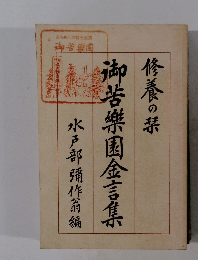 修養の栞
御苦樂園金言集
水戸部彌作翁編
御苦樂園